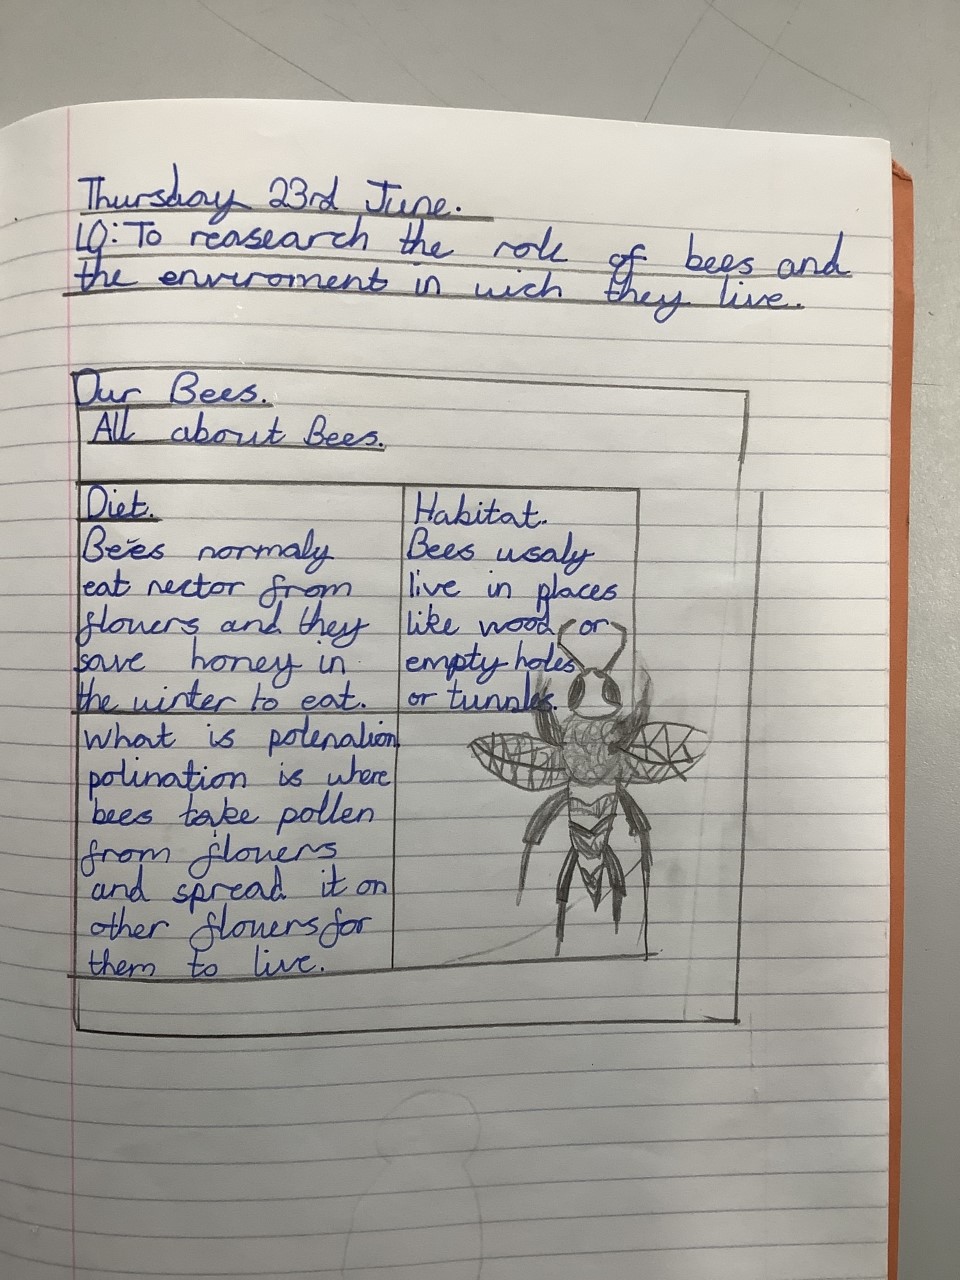 Thursday 23rd June.
LO: To reasearch the role of bees and
the enviroment in wich they live.
Our Bees.
All about Bees.
Diet.
Bees normaly
eat nector from
flowers and they
save honey in
the winter to eat.
Habitat.
Bees usaly
live in places
like wood or
empty holes
or tunnles.
What is polenation
polination is where
bees take pollen
from flowers
and spread it on
other flowers for
them to live.